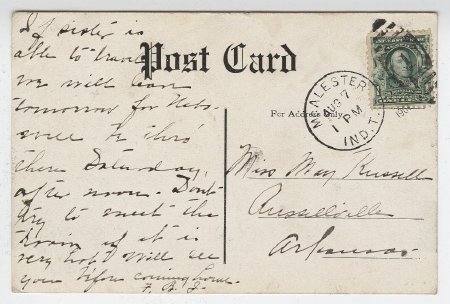 If sister is
able to travel
we will leave
tomorrow for
ville & thro'
there Saturday,
after noon. Don't
try to meet the
train if it is
very hot. Will see
you before coming home.
Post Card
For Address Only
M'ALESTER
AUG 7
1 PM
IND. T.
Miss May Russell
Russellville
Arkansas